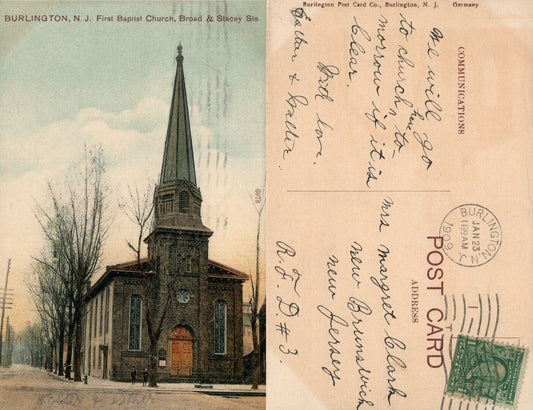 BURLINGTON, N. J. First Baptist Church, Broad & Stacey Sts
6978
Burlington Post Card Co., Burlington, N. J. Germany
COMMUNICATIONS
We will go
to church here to-
morrow if it is
clear.
With love.
&
POST CARD
ADDRESS
Mrs Margret Clark
New Brunswich
New Jersey
R. F. D. #3.
BURLINGTON,
JAN 23
11 30 AM
1909
N.J.